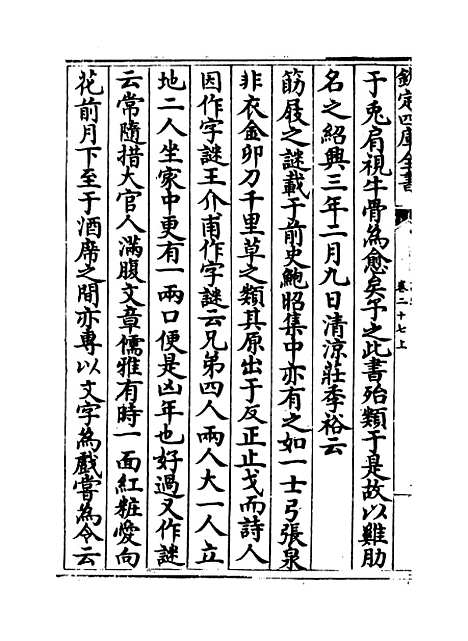 欽定四庫全書
卷二十七上
于兎肩視牛骨為愈矣予之此書殆類于是故以雞肋
名之紹興三年二月九日清涼莊季裕云
筋屐之謎載于前史鮑昭集中亦有之如一士弓張泉
非衣金卯刀千里草之類其原出于反正止戈而詩人
因作字謎王介甫作字謎云兄弟四人兩人大一人立
地二人坐家中更有一兩口便是凶年也好過又作謎
云常隨措大官人滿腹文章儒雅有時一面紅粧愛向
花前月下至于酒席之間亦專以文字為戲嘗為令云